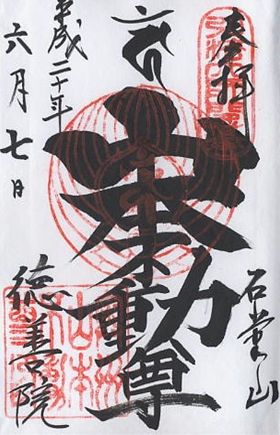 奉拝
石堂山
山本不動尊
平成二十年
六月七日
徳善院